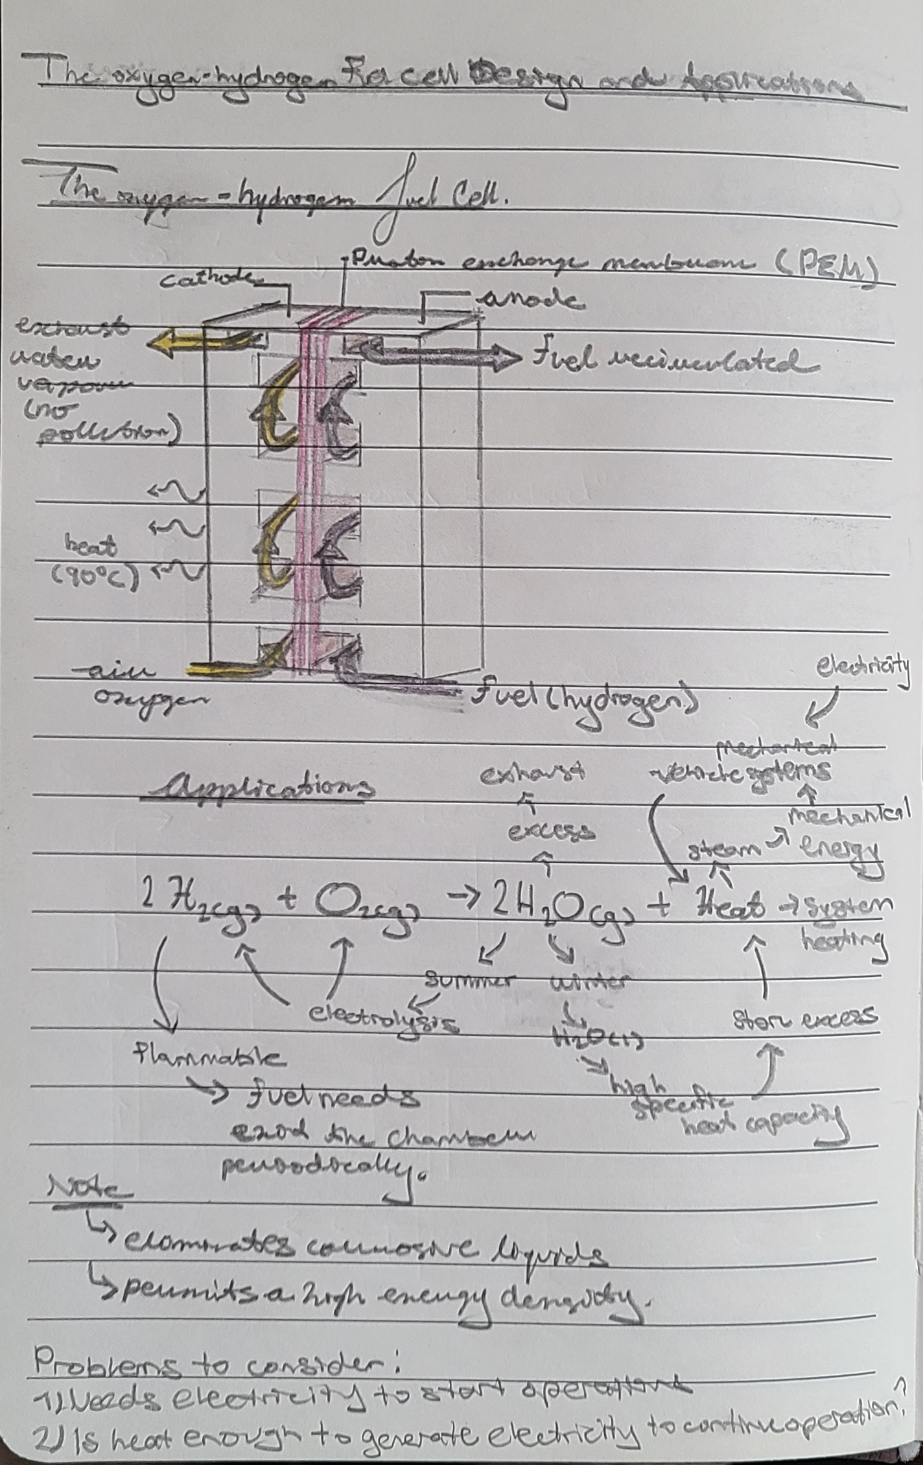 The oxygen-hydrogen Fuel cell Design and Applications
The oxygen-hydrogen fuel Cell.
Proton exchange membrane (PEM)
cathode
anode
exhaust
water
vapour
(no
pollution)
fuel recirculated
heat
(90°C)
air
oxygen
fuel (hydrogen)
electricity
mechanical
vehicle systems
Applications
exhaust
excess
mechanical
steam → energy
2 H₂(g) + O₂(g) → 2H₂O(g) + Heat → system
heating
summer winter
electrolysis
H₂O(l)
store excess
flammable
high
specific
heat capacity
↳ fuel needs
exod the chamber
periodically.
Note
↳ eliminates corrosive liquids
↳ permits a high energy density.
Problems to consider:
1) Needs electricity to start operations
2) Is heat enough to generate electricity to continue operation?